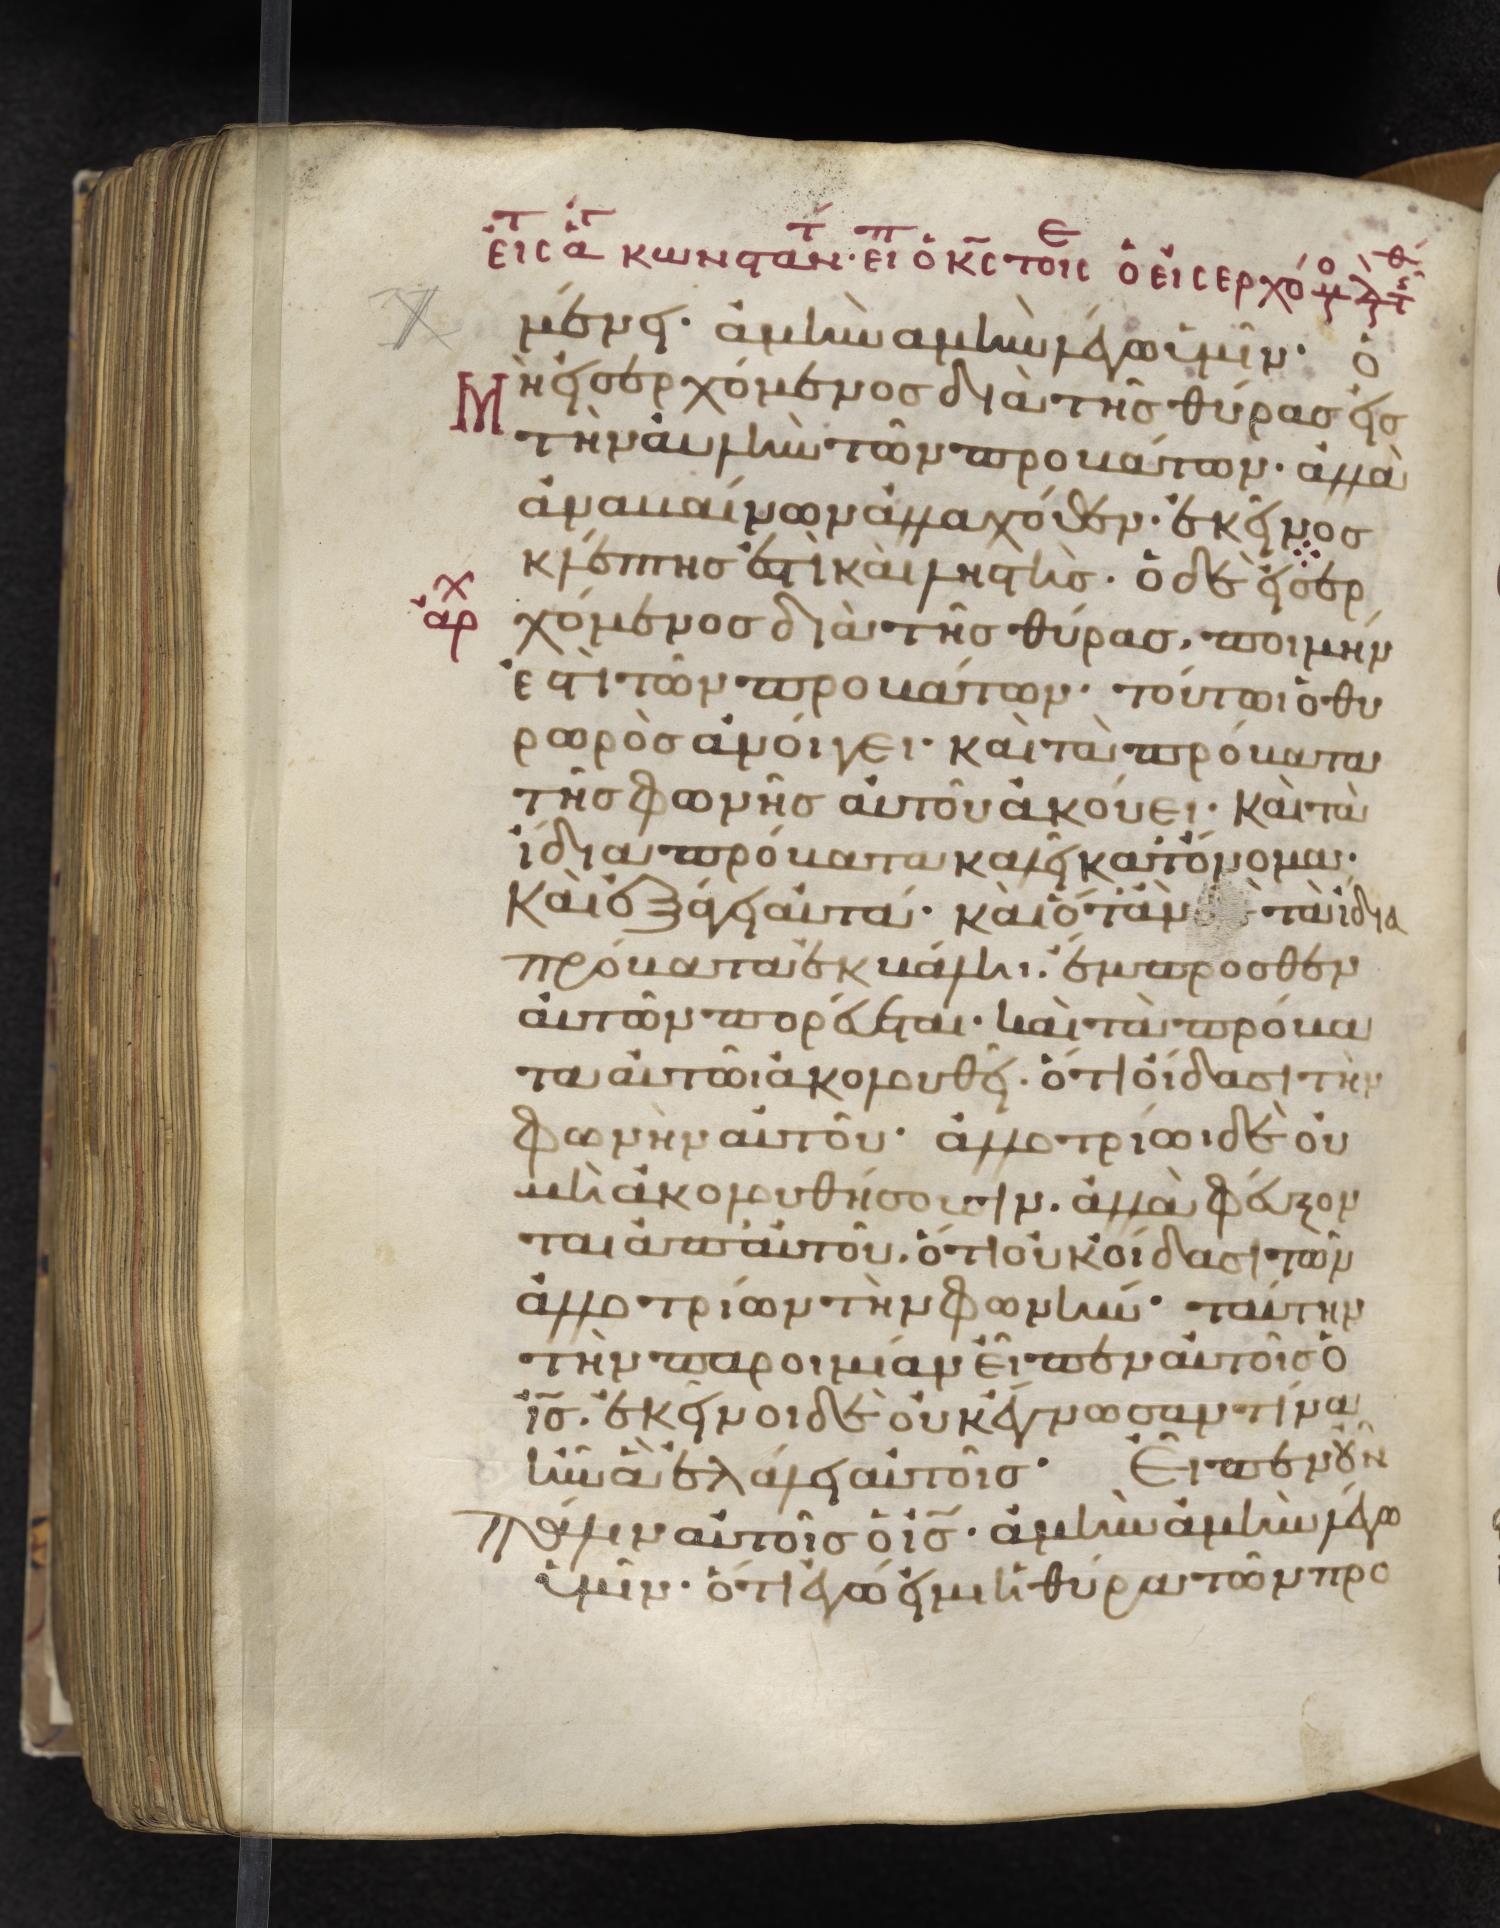 εἰς ἁ κωνσταν· εἰ ὁ κς τοις ὁ εἰσερχό
μένει· ἀμὴν ἀμὴν λέγω ὑμῖν· ὁ
Μὴ εἰσερχόμενος διὰ τῆς θύρας εἰς
τὴν αὐλὴν τῶν προβάτων· ἀλλὰ
ἀναβαίνων ἀλλαχόθεν· ἐκεῖνος
κλέπτης ἐστὶ καὶ ληστής· ὁ δὲ εἰσερ
αρχ χόμενος διὰ τῆς θύρας, ποιμήν
ἐστὶ τῶν προβάτων· τούτωι ὁ θυ
ρωρὸς ἀνοίγει· καὶ τὰ πρόβατα
τῆς φωνῆς αὐτοῦ ἀκούει· καὶ τὰ
ἴδια πρόβατα καλεῖ κατόνομα·
καὶ ἐξάγει αὐτά· καὶ ὅταν τὰ ἴδια
πρόβατα ἐκβάλη· ἔμπροσθεν
αὐτῶν πορεύεται· καὶ τὰ πρόβα
τα αὐτῶι ἀκολουθεῖ· ὅτι οἴδασι τὴν
φωνὴν αὐτοῦ· ἀλλοτρίωι δὲ οὐ
μὴ ἀκολουθήσουσιν· ἀλλὰ φεύξον
ται ἀπ' αὐτοῦ· ὅτι οὐκ οἴδασι τῶν
ἀλλοτρίων τὴν φωνήν· ταύτην
τὴν παροιμίαν εἶπεν αὐτοῖς ὁ
ις· ἐκεῖνοι δὲ οὐκ ἔγνωσαν τίνα
ἦν ἃ ἐλάλει αὐτοῖς· Εἶπεν οὖν
πάλιν αὐτοῖς ὁ ις· ἀμὴν ἀμὴν λέγω
ὑμῖν· ὅτι ἐγώ εἰμι ἡ θύρα τῶν προ